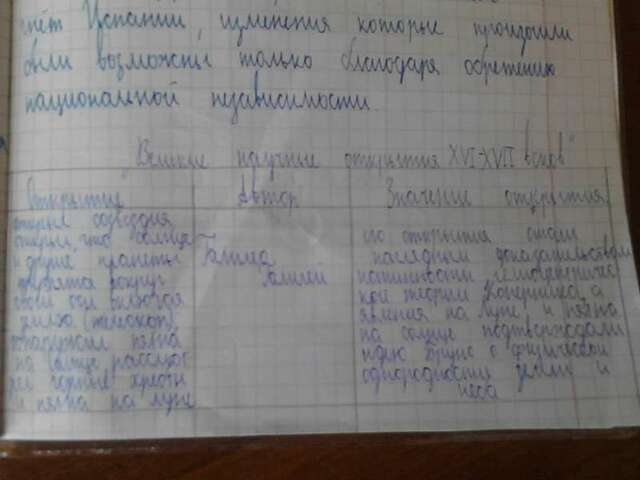 счёт Испании, изменения которые произошли
были возможны только благодаря обретению
национальной независимости.
"Великие научные открытия XVI-XVII веков"
Открытие
Автор
Значение открытия
открыл созвездия,
открыл, что солнце
и другие планеты
вокруг
своей оси включая
(телескоп),
обнаружил пятна
на солнце, рассмот
рел горные хребты
и пятна на луне
Галилео
Галилей
его открытия стали
наглядным доказательством
истинности гелиоцентричес
кой теории Коперника, а
явления на луне и пятна
на солнце подтверждали
идею Бруно о физической
однородности земли и
неба